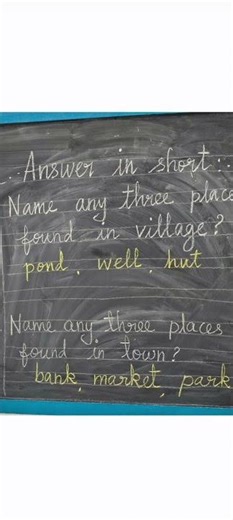 Answer in short:.
Name any three place
found in village?
pond, well, hut
Name any three places
found in town?
bank, market, park